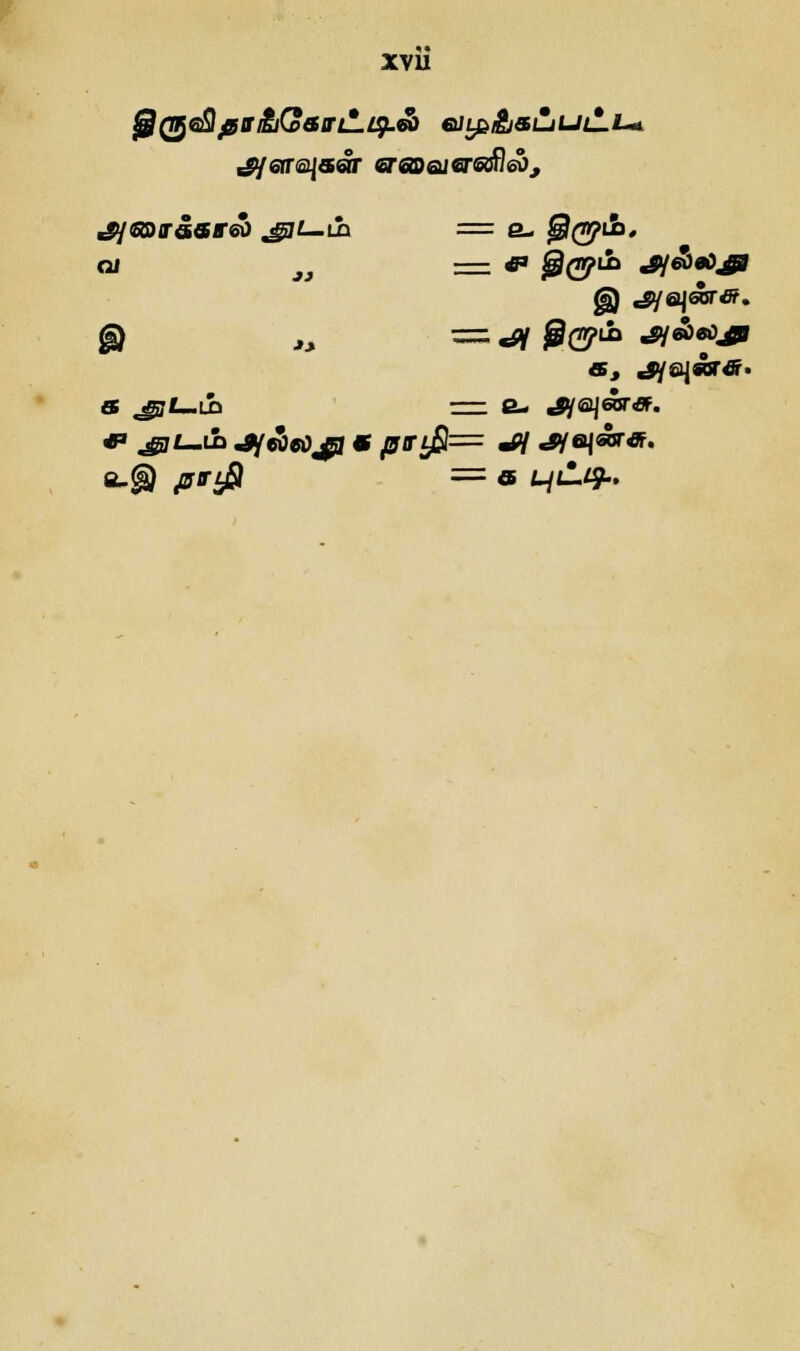 xvii
திருவிதாங்கோட்டில் வழங்கப்பட்ட
அளவுகள் எவையெனில்,
அரைக்கால் துடம் = உ திராம்.
வ ,, = ச திராம் அல்லது
இ அவுன்ச.
இ ,, = அ திராம் அல்லது
க, அவுன்ச.
க துடம் = உ அவுன்ச.
ச துடம் அல்லது க நாழி = அ அவுன்ச.
உஇ நாழி = க புட்டி.